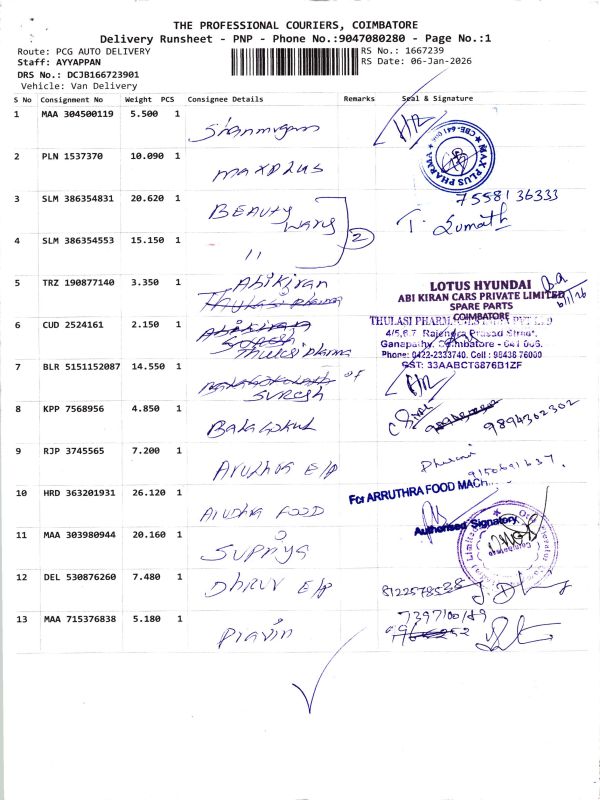 THE PROFESSIONAL COURIERS, COIMBATORE
Delivery Runsheet - PNP - Phone No.:9047080280 - Page No.:1
Route: PCG AUTO DELIVERY
RS No.: 1667239
Staff: AYYAPPAN
RS Date: 06-Jan-2026
DRS No.: DCJB166723901
Vehicle: Van Delivery
S No Consignment No Weight PCS Consignee Details Remarks Seal & Signature
1 MAA 304500119 5.500 1 Shanmugam
MAX PLUS PHARMA
2 PLN 1537370 10.090 1 MAXPLUS
3 SLM 386354831 20.620 1 BEAUTY 7558136333
2
4 SLM 386354553 15.150 1 11
5 TRZ 190877140 3.350 1 Abikiran
Thulasi pharma
LOTUS HYUNDAI
ABI KIRAN CARS PRIVATE LIMITED
SPARE PARTS
COIMBATORE
6/1/26
6 CUD 2524161 2.150 1 Abikiran
SURESH
Thulasi pharma
4/5,6,7, Rajendra Prasad Street,
Ganapathy, Coimbatore - 641 006.
Phone: 0422-2333740. Cell: 98438 76000
GST: 33AABCT5876B1ZF
7 BLR 5151152087 14.550 1 SURESH
8 KPP 7568956 4.850 1 Balagokul 9894302302
9 RJP 3745565 7.200 1 E/P
10 HRD 363201931 26.120 1 FOOD
For ARRUTHRA FOOD
Authorised Signatory
11 MAA 303980944 20.160 1 SUPRYA
12 DEL 530876260 7.480 1 DHRUV E/P
13 MAA 715376838 5.180 1 Pravin